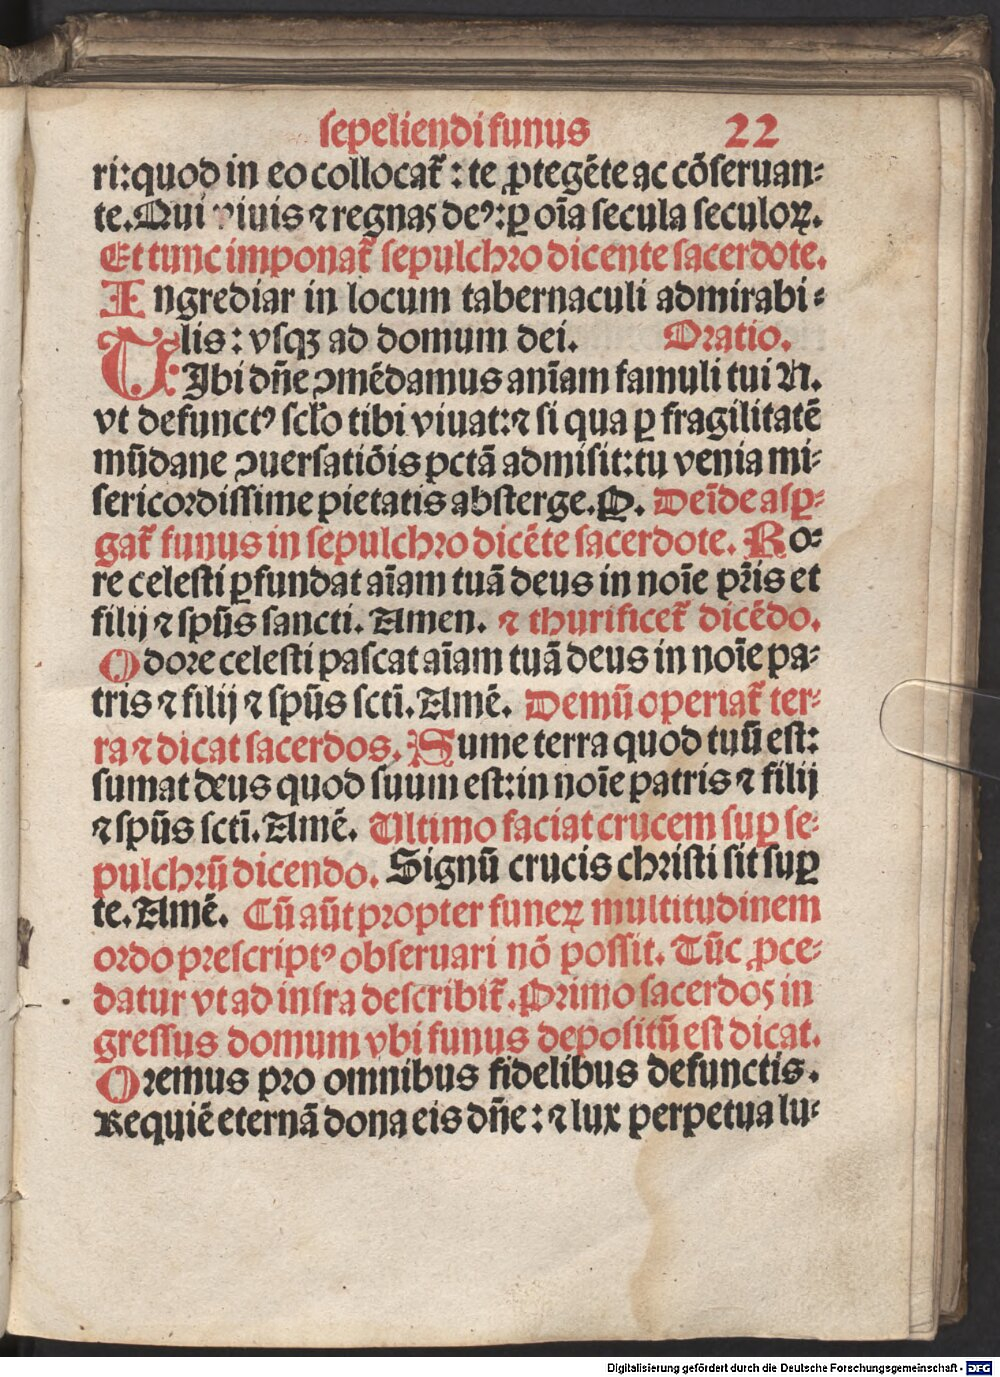 sepeliendi funus 22
ri:quod in eo collocat᷑ : te ꝓtegēte ac cōseruan-
te. Qui viuis ⁊ regnas deꝰ: ꝑ oīa secula seculoꝝ.
Et tunc imponat᷑ sepulchro dicente sacerdote.
Ingrediar in locum tabernaculi admirabi-
lis: vsqꝫ ad domum dei. Oratio.
TIbi dñe ꝯmēdamus anīam famuli tui N.
vt defunctꝰ scło tibi viuat: ⁊ si qua ꝑ fragilitatē
mūdane ꝯuersatiōis pctā admisit: tu venia mi-
sericordissime pietatis absterge. P. Deīde asꝑ-
gat᷑ funus in sepulchro dicēte sacerdote. Ro-
re celesti ꝑfundat aīam tuā deus in noīe pr̄is et
filij ⁊ spūs sancti. Amen. ⁊ thurificet᷑ dicēdo.
Odore celesti pascat aīam tuā deus in noīe pa-
tris ⁊ filij ⁊ spūs sctī. Amē. Demū operiat᷑ ter-
ra ⁊ dicat sacerdos. Sume terra quod tuū est:
sumat deus quod suum est: in noīe patris ⁊ filij
⁊ spūs sctī. Amē. Ultimo faciat crucem suꝑ se-
pulchrū dicendo. Signū crucis christi sit suꝑ
te. Amē. Cū aūt propter funeꝝ multitudinem
ordo prescriptꝰ obseruari nō possit. Tūc ꝓce-
datur vt ad infra describit᷑. Primo sacerdos in
gressus domum vbi funus depositū est dicat.
Oremus pro omnibus fidelibus defunctis.
Requiē eternā dona eis dñe: ⁊ lux perpetua lu-
Digitalisierung gefördert durch die Deutsche Forschungsgemeinschaft - DFG